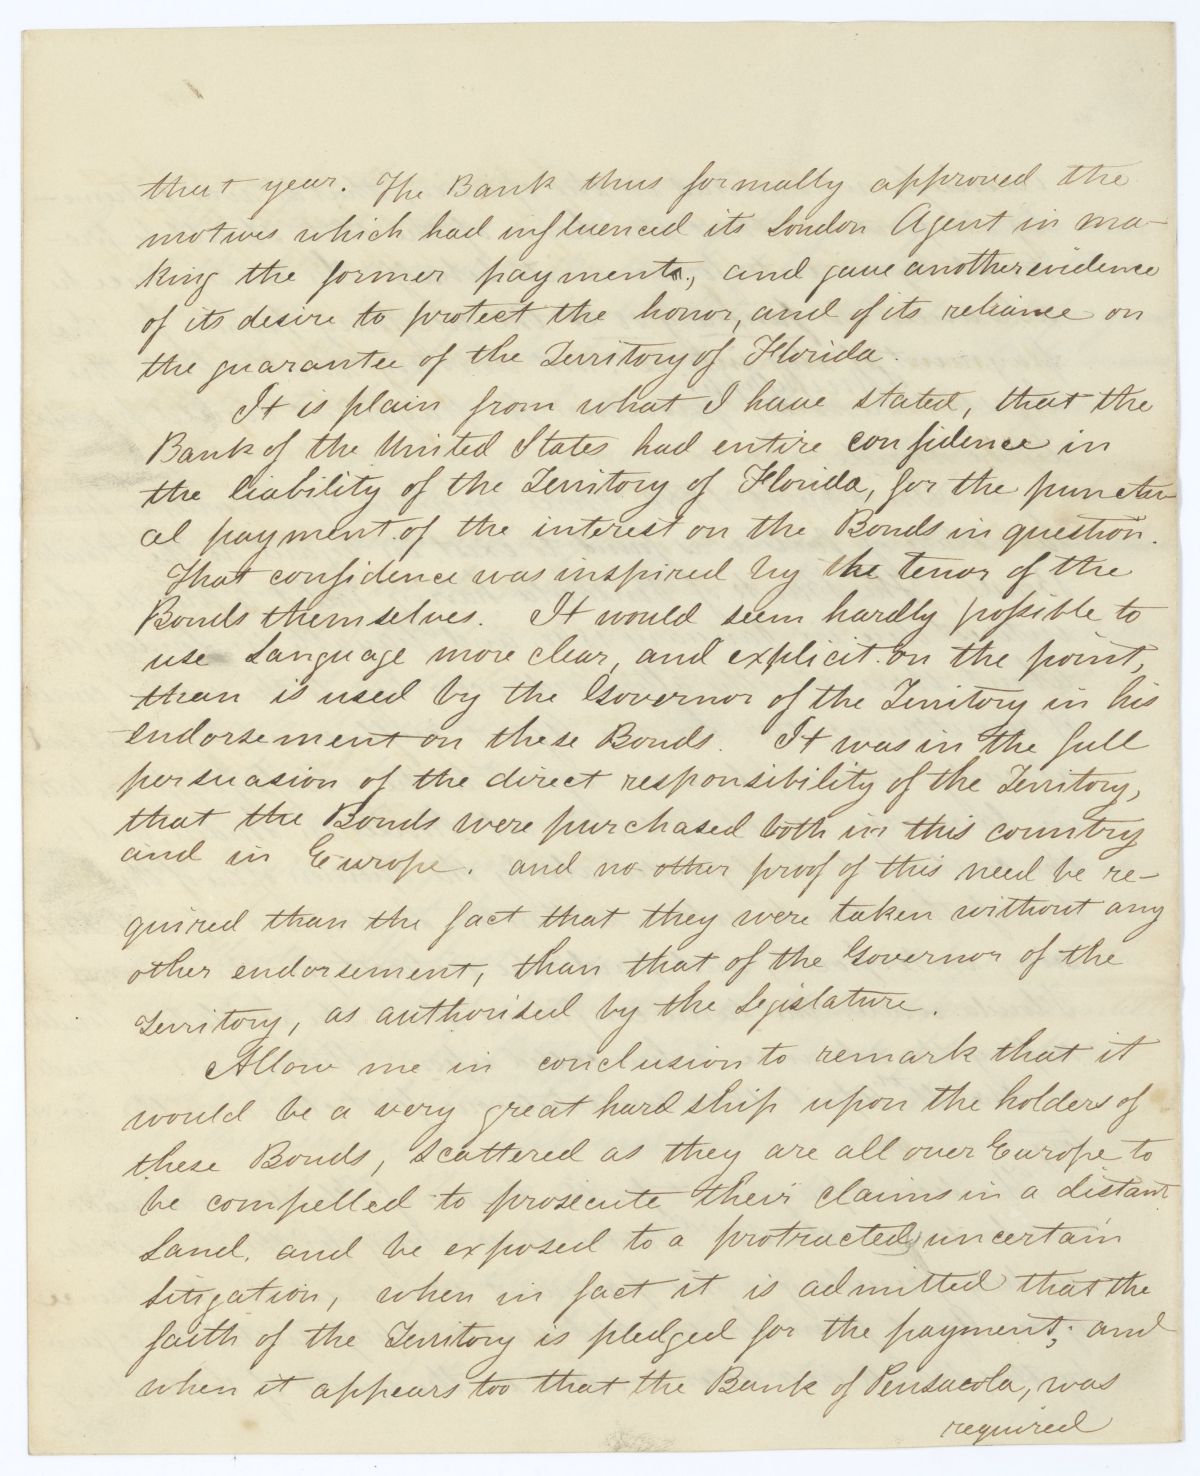 that year. The Bank thus formally approved the
motives which had influenced its London Agent in ma-
king the former payments, and gave another evidence
of its desire to protect the honor, and of its reliance on
the guarantee of the Territory of Florida.
It is plain from what I have stated, that the
Bank of the United States had entire confidence in
the liability of the Territory of Florida, for the punctu
al payment of the interest on the Bonds in question.
That confidence was inspired by the tenor of the
Bonds themselves. It would seem hardly possible to
use Language more clear, and explicit on the point,
than is used by the Governor of the Territory in his
endorsement on these Bonds. It was in the full
persuasion of the direct responsibility of the Territory,
that the Bonds were purchased both in this country
and in Europe. and no other proof of this need be re-
quired than the fact that they were taken without any
other endorsement, than that of the Governor of the
Territory, as authorised by the Legislature.
Allow me in conclusion to remark that it
would be a very great hardship upon the holders of
these Bonds, scattered as they are all over Europe to
be compelled to prosecute their claims in a distant
Land, and be exposed to a protracted uncertain
Litigation, when in fact it is admitted that the
faith of the Territory is pledged for the payment; and
when it appears too that the Bank of Pensacola, was
required